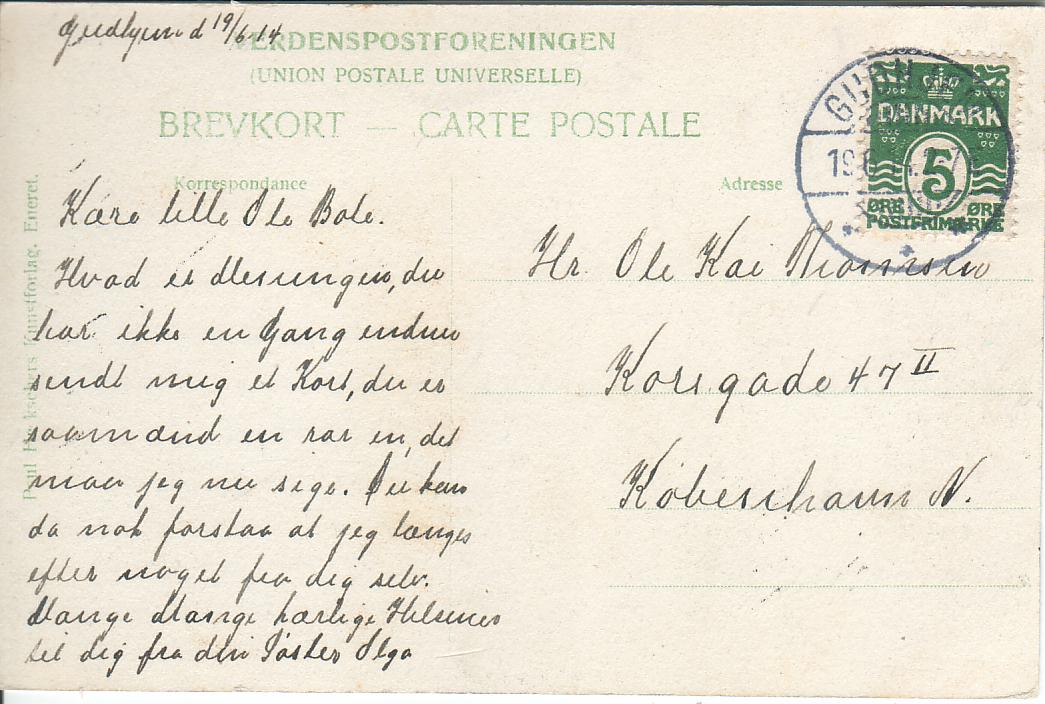 Gudhjem d 19/6 14
VERDENSPOSTFORENINGEN
(UNION POSTALE UNIVERSELLE)
BREVKORT — CARTE POSTALE
Korrespondance
Kære lille Ole Bole.
Hvad er Meningen, du
har ikke en Gang endnu
sendt mig et Kort, du er
saamænd en rar en, det
maa jeg nu sige. Du kan
da nok forstaa at jeg længes
efter noget fra dig selv.
Mange Mange kærlige Hilsener
til dig fra din Søster Olga
Adresse
Hr. Ole Kai Thomsen
Korsgade 47 II
Københavm N.
DANMARK
5
ØRE ØRE
POSTFRIMÆRKE
Paul Heckschers Kunstforlag. Eneret.